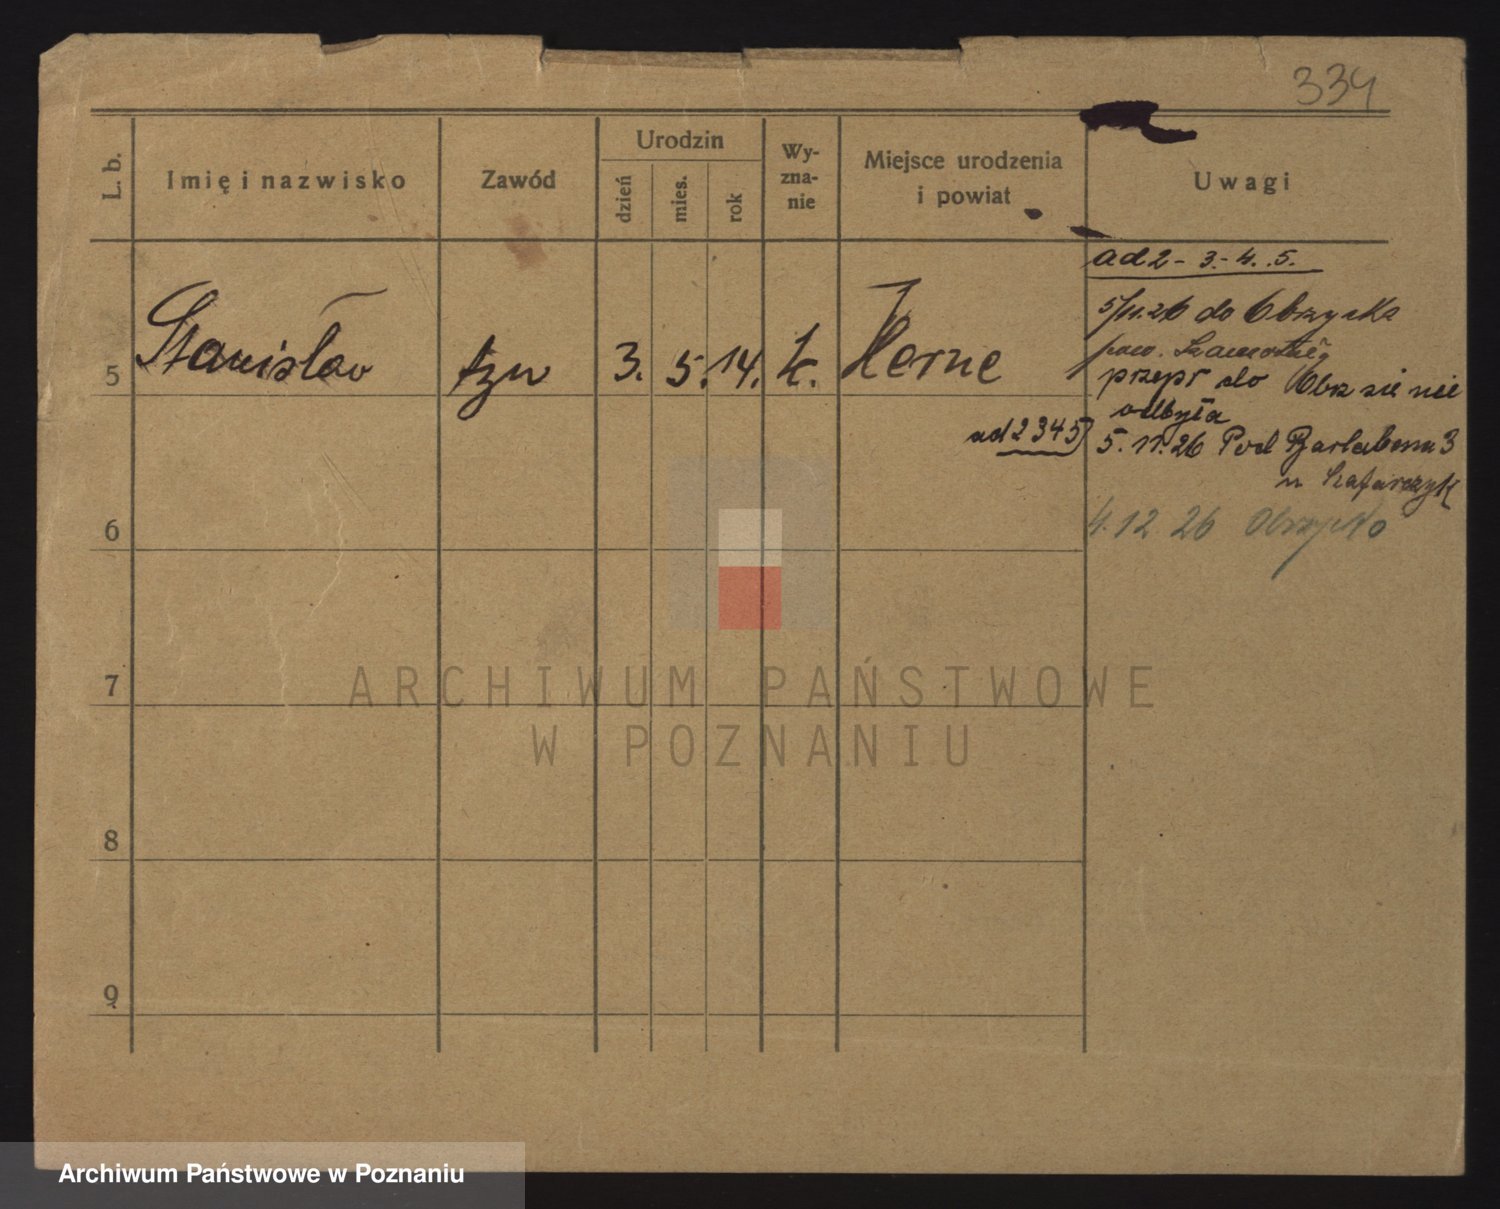 334
L. b.
Imię i nazwisko
Zawód
Urodzin
dzień
mies.
rok
Wy-
zna-
nie
Miejsce urodzenia
i powiat
Uwagi
ad 2 - 3. - 4. . 5.
5 Stanisław 3. 5. 14. k. Herne
5/11.26 do Obrzycka
pow. Szamotuły
przepr do Obrz się nie
odbyła
ad 2 3 4 5) 5. 11. 26 Pod
u Szafarczyk
6
4. 12 26 Obrzycko
7
ARCHIWUM PAŃSTWOWE
W POZNANIU
8
9
Archiwum Państwowe w Poznaniu